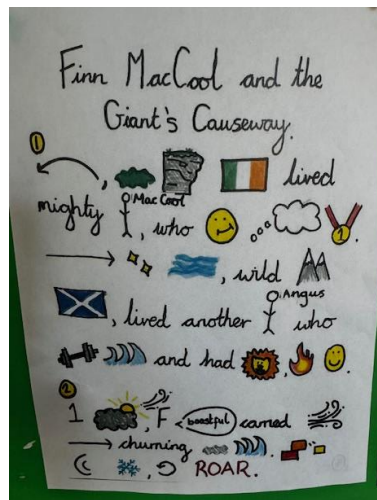 Finn MacCool and the
Giant's Causeway.
1
, lived
Mac Cool
mighty , who 1 .
, wild
Angus
, lived another who
and had , .
2
1 , F boastful carried
churning .
, ROAR.